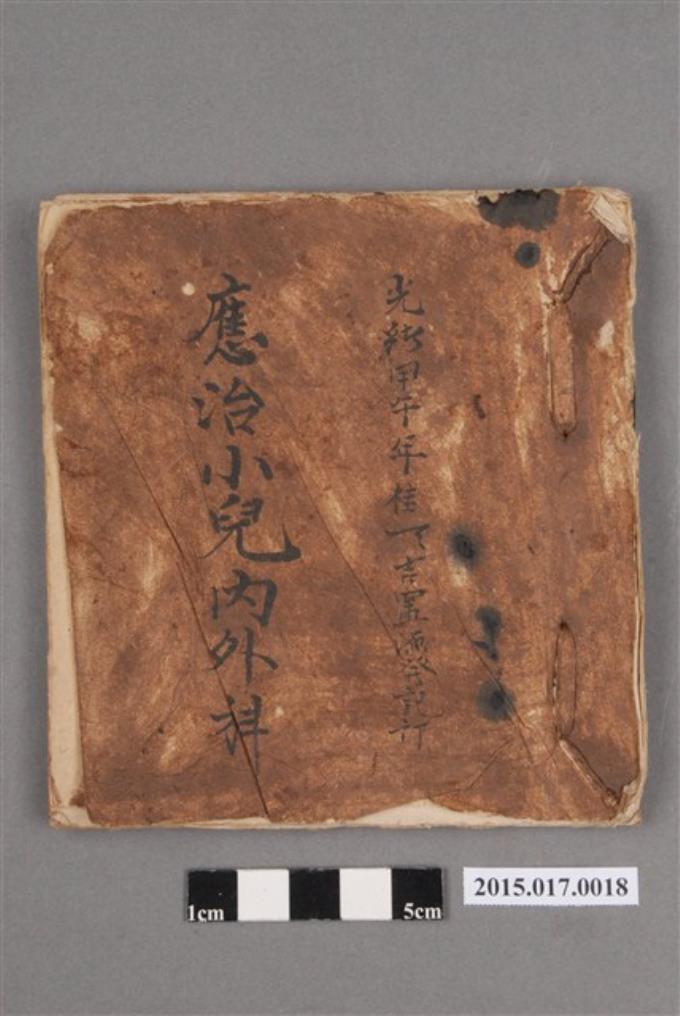 光緒甲午年桂
應治小兒內外科
1cm 5cm
2015.017.0018